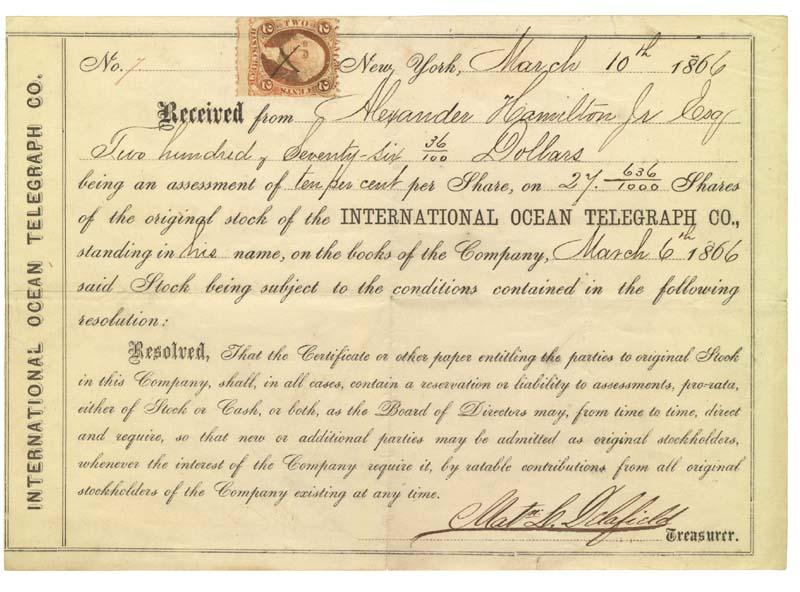 INTERNATIONAL OCEAN TELEGRAPH CO.
TWO
2 2
2 CENTS 2
No. 7 New York, March 10th 1866
Received from Alexander Hamilton Jr Esq
Two hundred & Seventy-six 36/100 Dollars
being an assessment of ten per cent per Share, on 27. 636/1000 Shares
of the original stock of the INTERNATIONAL OCEAN TELEGRAPH CO.,
standing in his name, on the books of the Company, March 6th 1866
said Stock being subject to the conditions contained in the following
resolution:
Resolved, That the Certificate or other paper entitling the parties to original Stock
in this Company, shall, in all cases, contain a reservation or liability to assessments, pro-rata,
either of Stock or Cash, or both, as the Board of Directors may, from time to time, direct
and require, so that new or additional parties may be admitted as original stockholders,
whenever the interest of the Company require it, by ratable contributions from all original
stockholders of the Company existing at any time.
Matn L. Delafield
Treasurer.